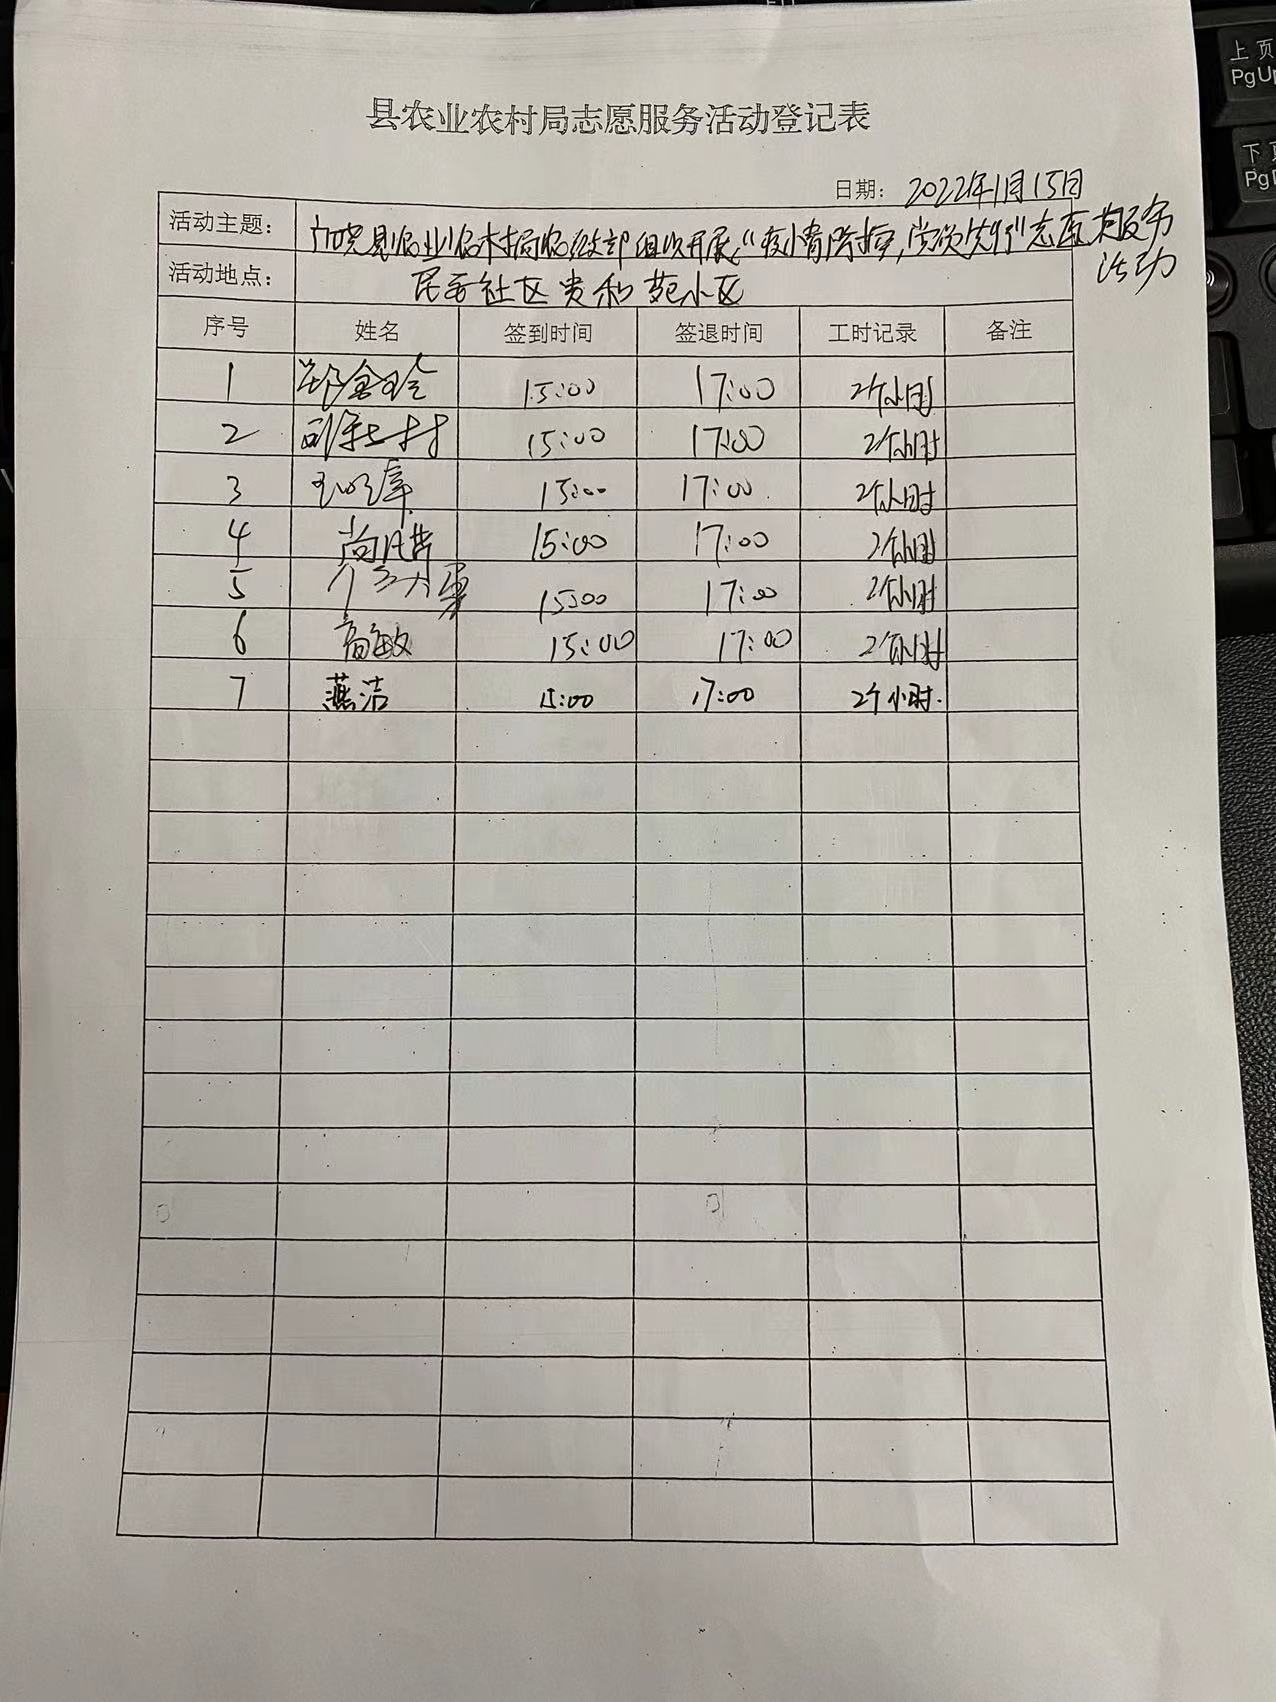 县农业农村局志愿服务活动登记表
日期: 2022年1月15日
活动主题: 县农业农村局 组织开展“疫情防控,党员先行”志愿服务
活动
活动地点: 社区贵和苑小区
序号 姓名 签到时间 签退时间 工时记录 备注
1 15:00 17:00 2个小时
2 15:00 17:00 2个小时
3 15:00 17:00 2个小时
4 15:00 17:00 2个小时
5 15:00 17:00 2个小时
6 高敏 15:00 17:00 2个小时
7 燕洁 15:00 17:00 2个小时.
上页
PgUp
下页